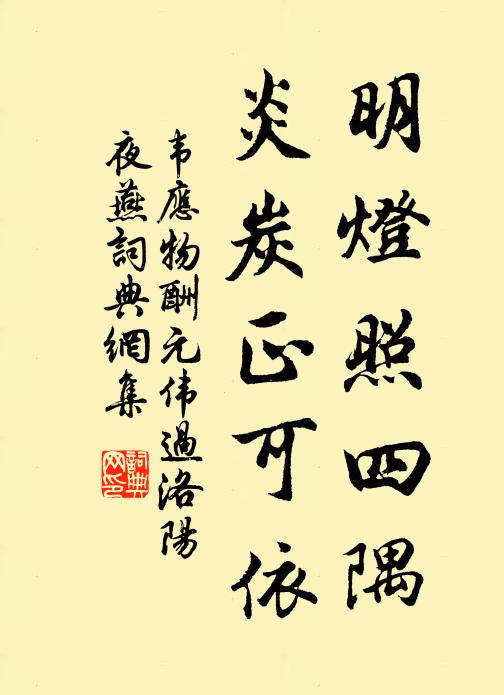 明燈照四隅
炎炭正可依
韦應物酬元伟過洛陽
夜燕詞典網集
詞典网印